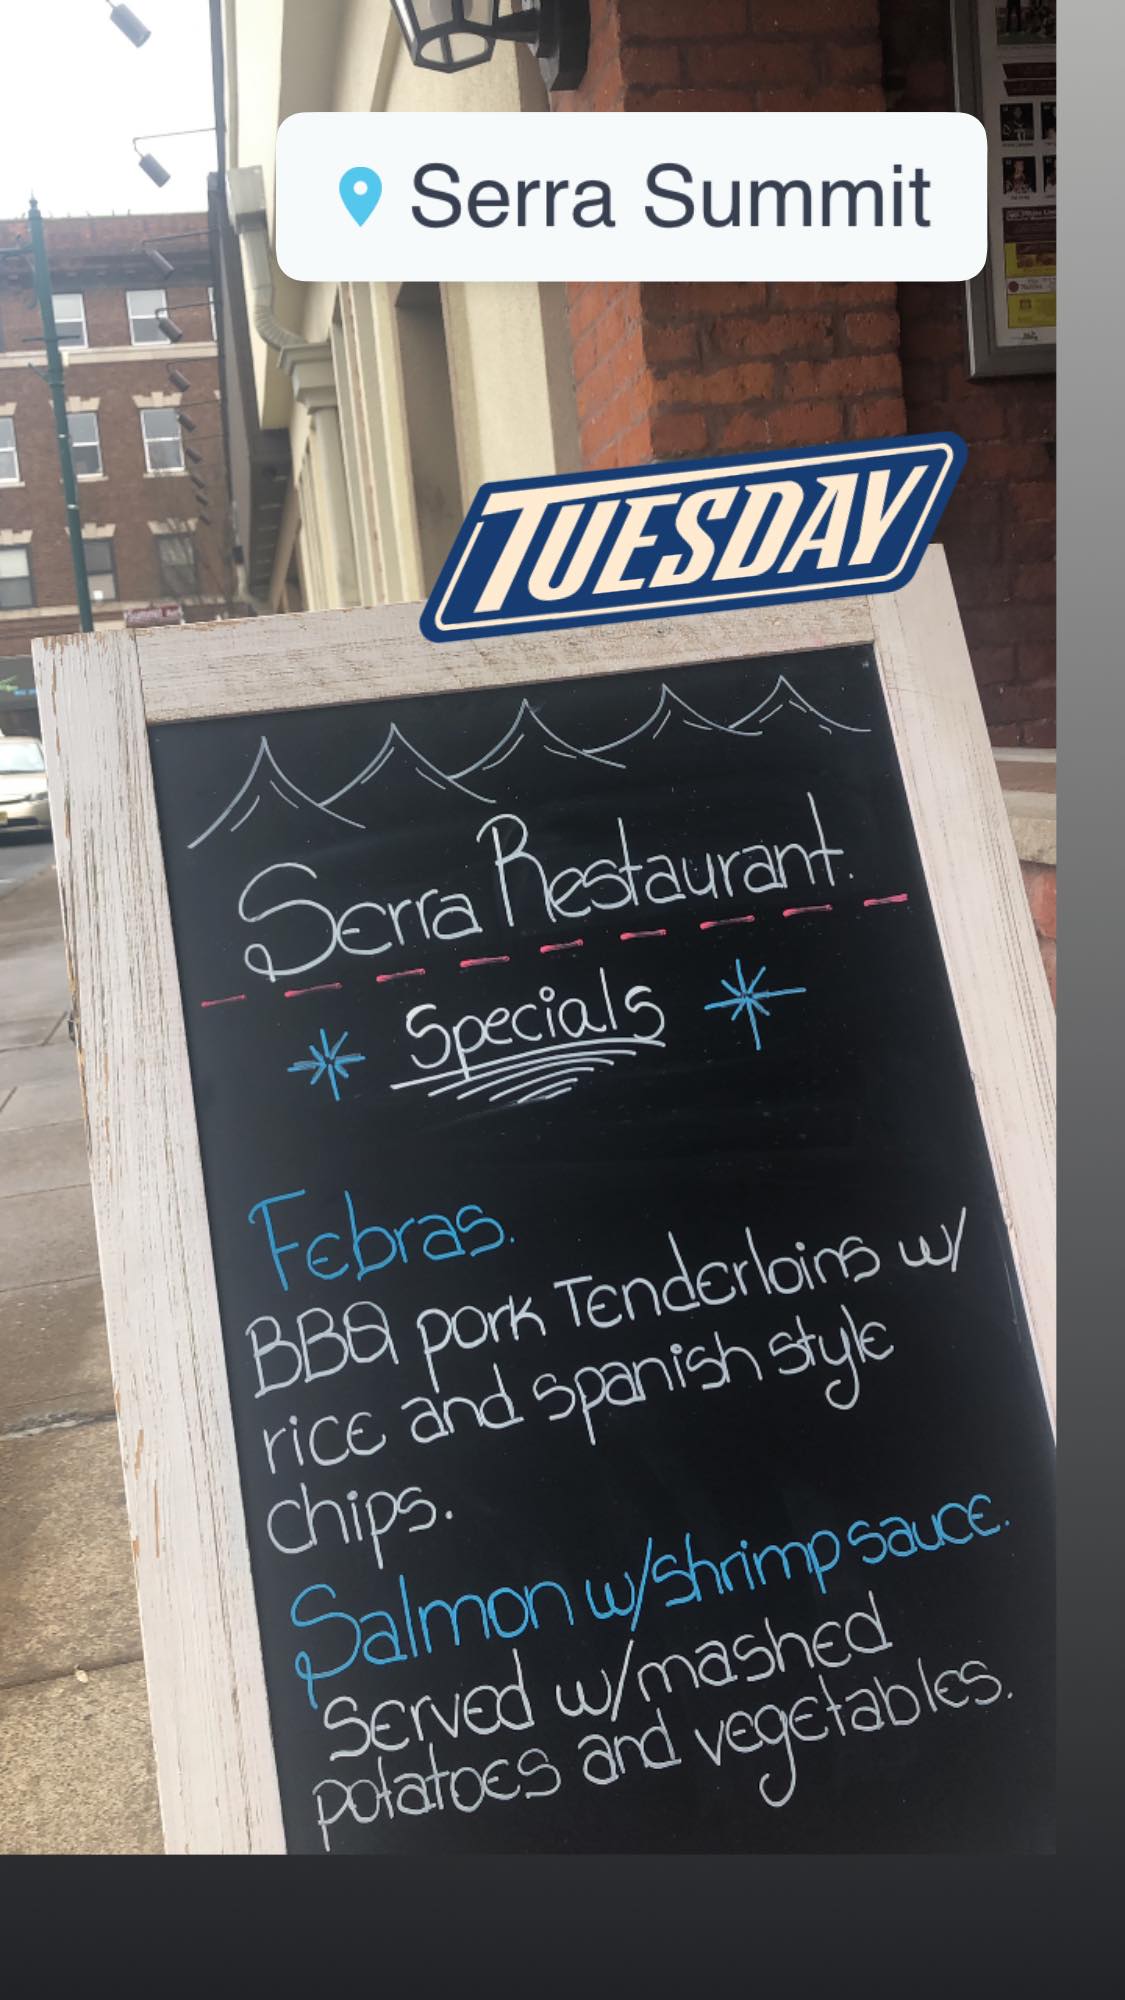 Serra Summit
TUESDAY
Serra Restaurant.
Specials
Febras.
BBQ pork Tenderloins w/
rice and spanish style
chips.
Salmon w/shrimp sauce.
Served w/mashed
potatoes and vegetables.